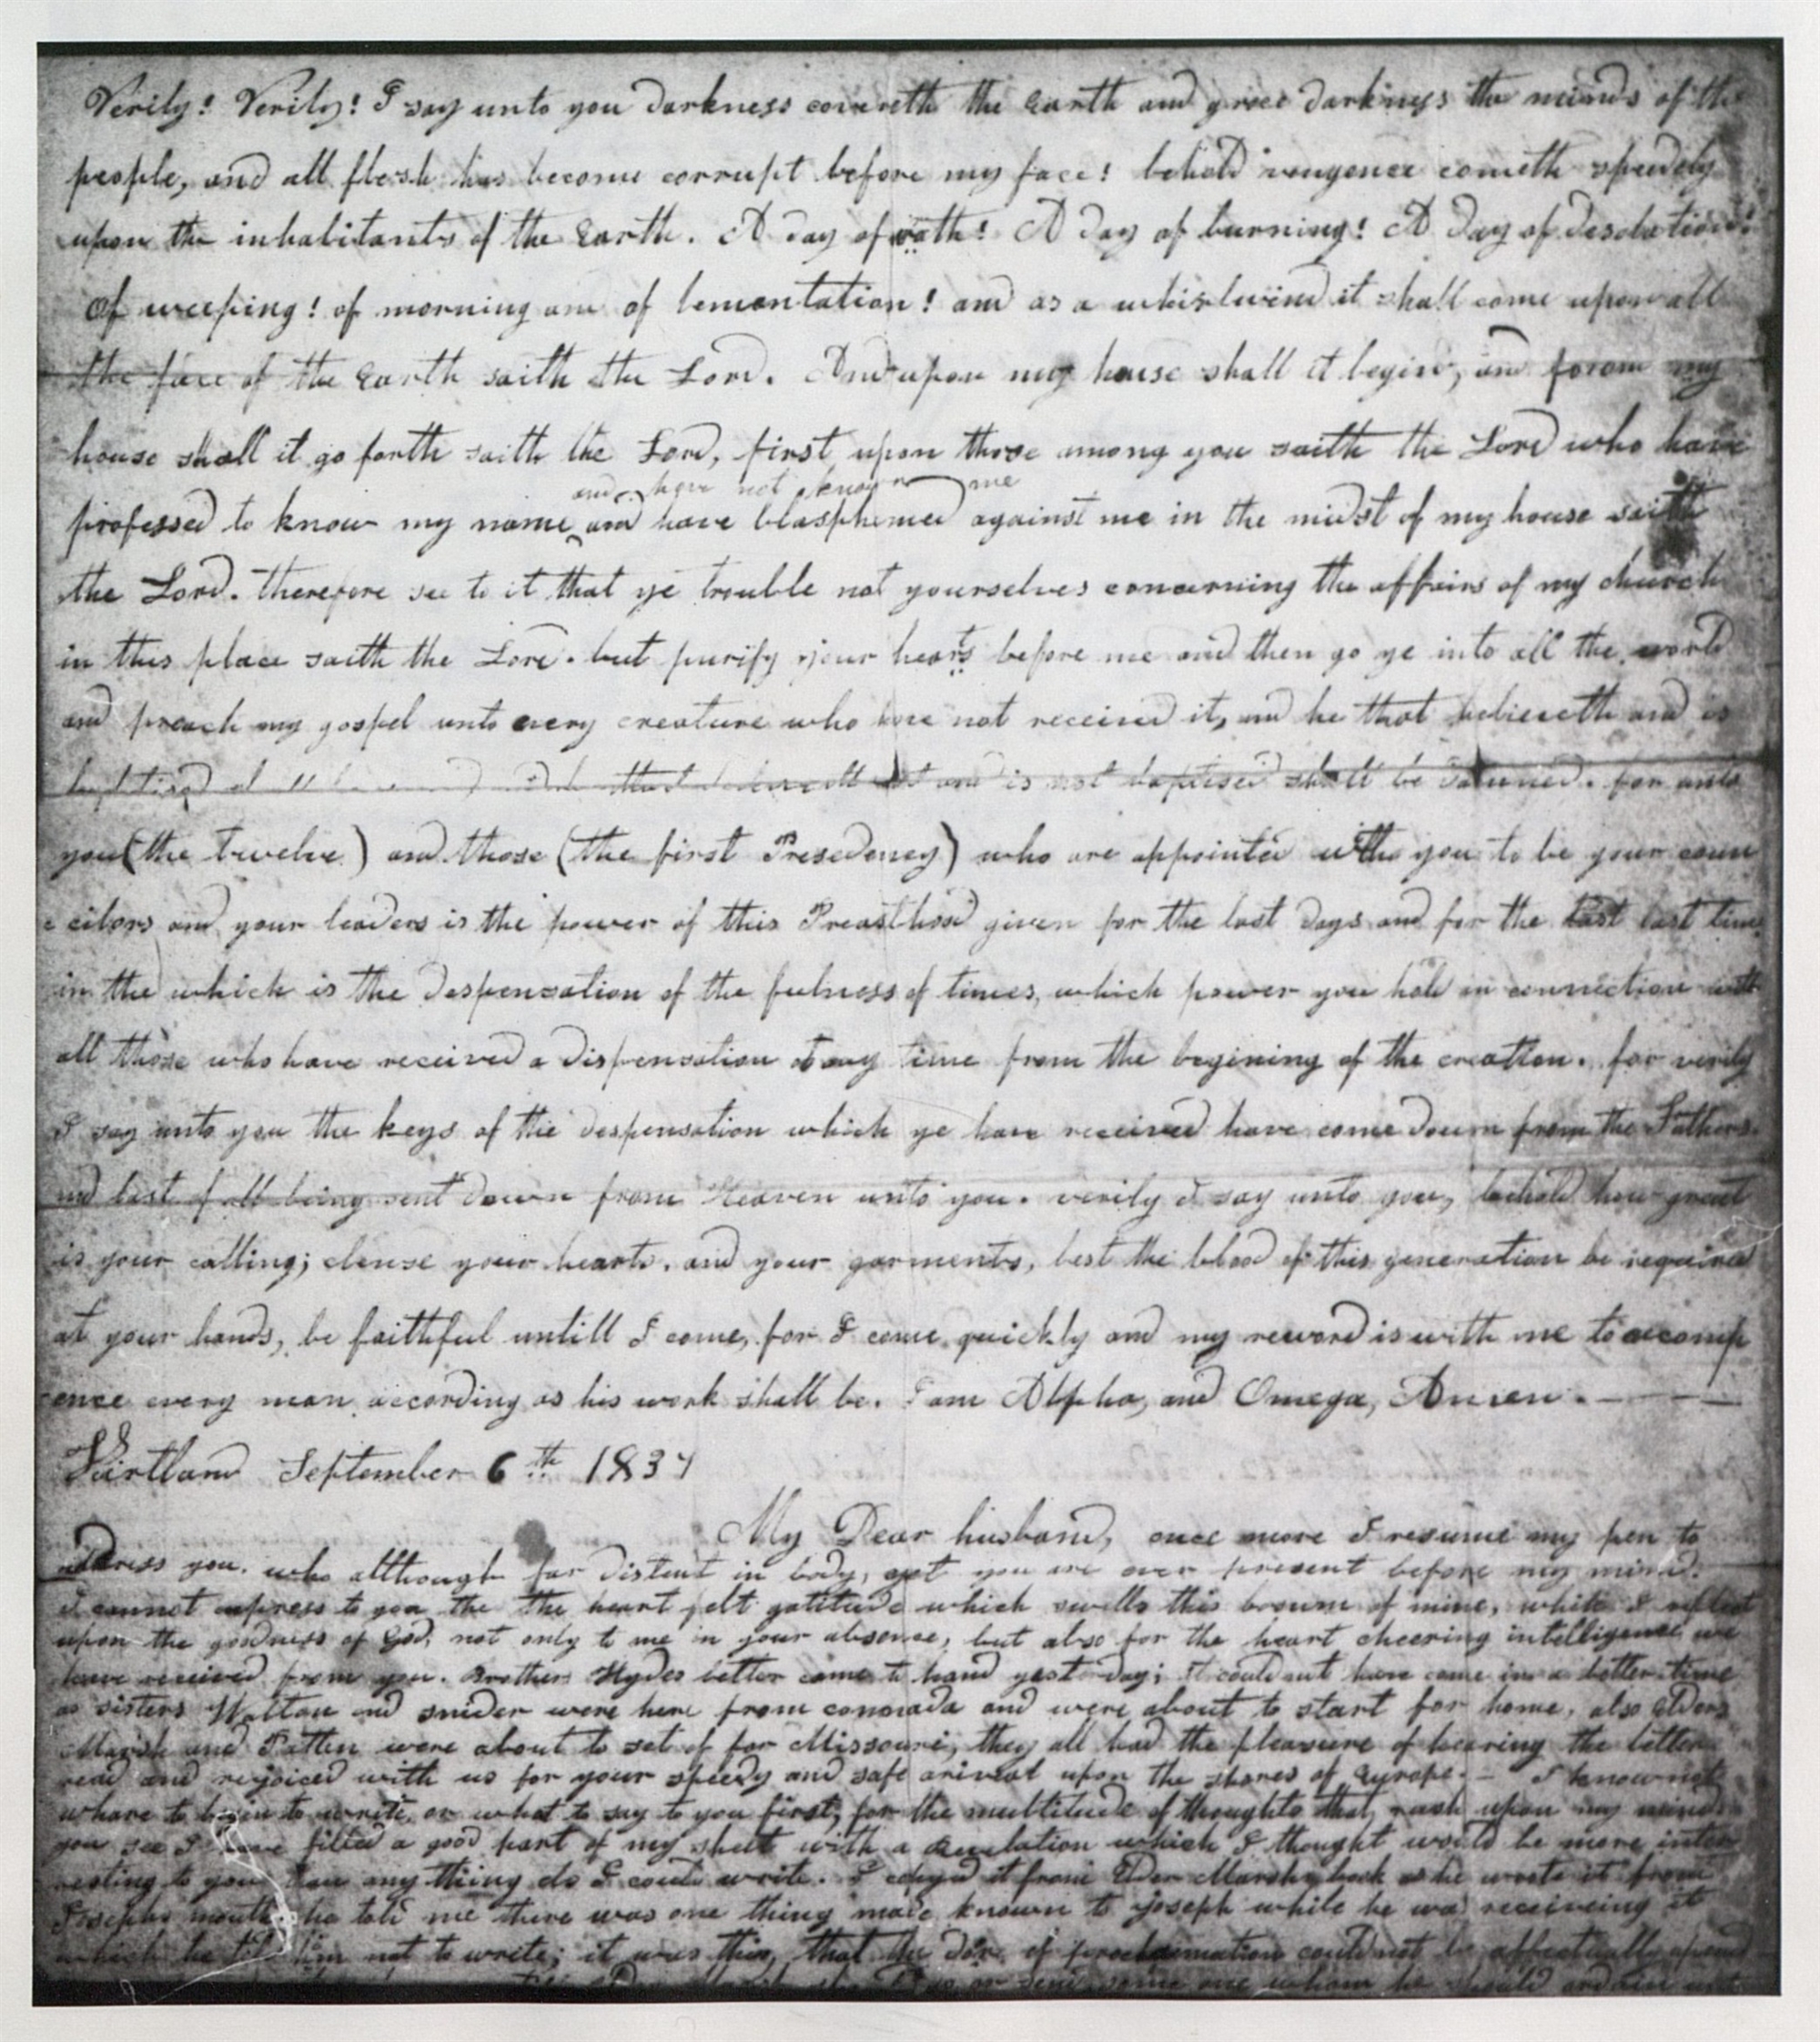 Verily! Verily! I say unto you darkness covereth the Earth and groce darkness the minds of the
people, and all flesh has become corrupt before my face! behold vengence cometh speedely
upon the inhabitants of the Earth. A day of wrath! A Day of burning! A Day of desolation!
Of weeping! of morning and of lementation! and as a whirlwind it shall come upon all
the face of the Earth saith the Lord. And upon my house shall it begin, and from my
house shall it go forth saith the Lord, first upon those among you saith the Lord who have
and have not known me
professed to know my name and have blasphemed against me in the midst of my house saith
the Lord. Therefore see to it that ye trouble not yourselves concerning the affairs of my church
in this place saith the Lord. but purify your hearts before me and then go ye into all the world
and preach my gospel unto every creature who have not received it, and he that believeth and is
that and is not baptised shall be damned. for unto
you (the twelve) and those (the first Presedency) who are appointed with you to be your coun
cilors and your leaders is the power of this Preasthood given for the last days and for the last last time
in the which is the despensation of the fulness of times, which power you hold in connection with
all those who have received a dispensation at any time from the begining of the creation. for verily
I say unto you the keys of the despensation which ye have received have come down from the Fathers
and last of all being sent down from Heaven unto you. verily I say unto you, behold how great
is your calling; clense your hearts, and your garments, lest the blood of this generation be required
at your hands, be faithful untill I come, for I come quickly and my reword is with me to recomp
ence every man according as his work shall be. I am Alpha, and Omega, Amen.
Kirtland September 6th 1837
My Dear husband, once more I resume my pen to
address you. who although far distent in body, yet you are ever present before my mind.
I cannot express to you the the heart felt gatitude which swells this bosume of mine, while I reflect
upon the goodness of God, not only to me in your absence, but also for the heart cheering intelligence we
have received from you. Brother Hydes letter came to hand yesterday; it could not have come in a better time
as sisters Walton and snider were here from cannada and were about to start for home, also Elders
Marsh and Patten were about to set of for Missouri, they all had the pleasure of hearing the letter
read and rejoiced with us for your speedy and safe arival upon the shores of Europe. - I know not
whare to begin to write, or what to say to you first, for the multitude of thoughts that rush upon my mind
you see I have filled a good part of my sheet with a Revelation which I thought would be more inter
resting to you than any thing els I could write. I copyd it from Elder Marshs book as he wrote it from
Josephs mouth he told me there was one thing made known to joseph while he was receiveing it
which he told him not to write; it was this, that the door of proclamation could not be affectually opend
or send some one whom he should ordain